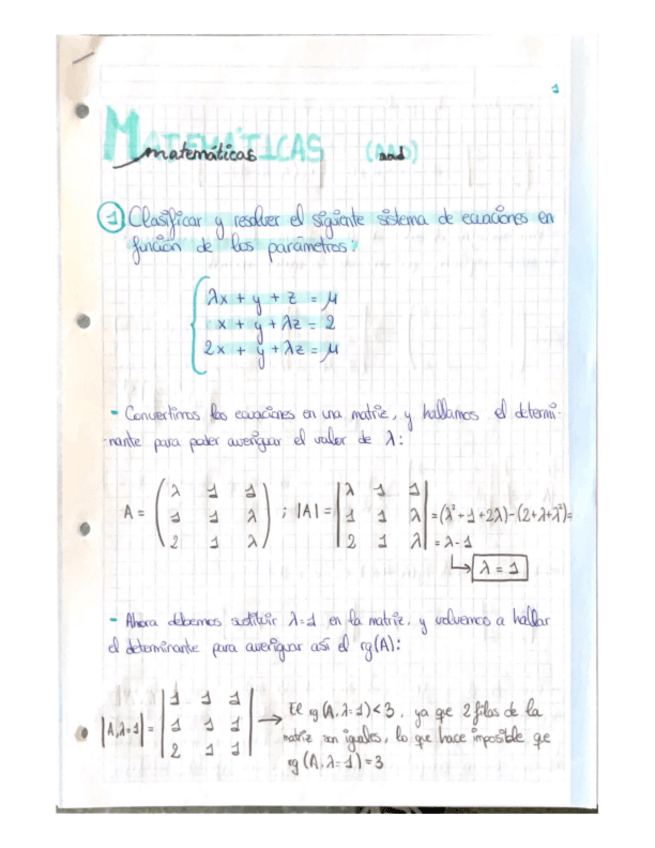 1
MATEMÁTICAS (AAD)
matemáticas aad
1 Clasificar y resolver el siguiente sistema de ecuaciones en
función de los parámetros:
λx + y + z = μ
x + y + λz = 2
2x + y + λz = μ
- Convertimos las ecuaciones en una matriz, y hallamos el determi-
-nante para poder averiguar el valor de λ:
A = ( λ 1 1 ; 1 1 λ ; 2 1 λ ) ; |A| = | λ 1 1 ; 1 1 λ ; 2 1 λ | = (λ²+1+2λ)-(2+λ+λ²)=
= λ-1
↳ λ = 1
- Ahora debemos sustituir λ=1 en la matriz, y volvemos a hallar
el determinante para averiguar así el rg(A):
|A,λ=1| = | 1 1 1 ; 1 1 1 ; 2 1 1 | → El rg(A,λ=1)<3, ya que 2 filas de la
matriz son iguales, lo que hace imposible que
rg(A,λ=1)=3